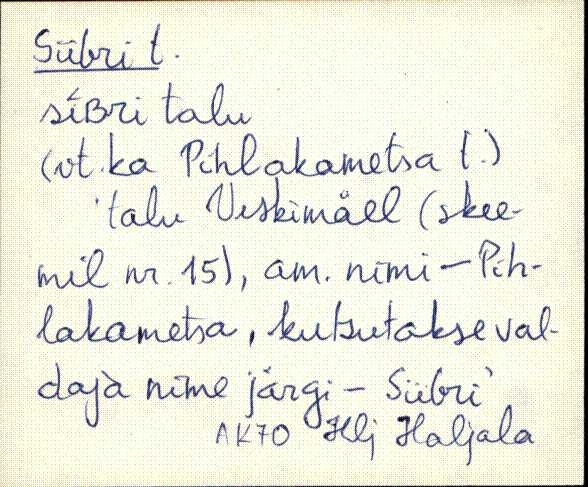 Siibri t.
síBri talu
(vt. ka Pihlakametsa t.)
'talu Veskimäel (skee-
mil nr. 15), am. nimi – Pih-
lakametsa, kutsutakse val-
daja nime järgi – Siibri'
AK70 Hlj Haljala